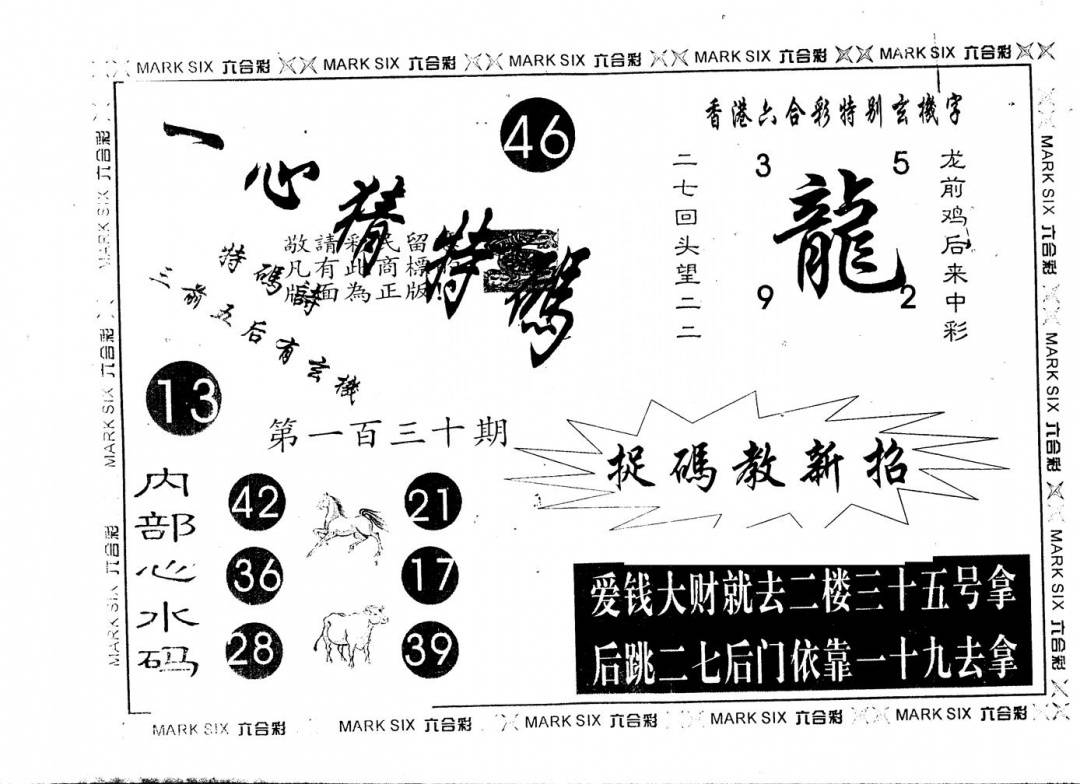 MARK SIX 六合彩 MARK SIX 六合彩 MARK SIX 六合彩 MARK SIX 六合彩 MARK SIX 六合彩
一心猜特碼
46
香港六合彩特别玄機字
二七回头望二二
3 5
龍
9 2
龙前鸡后来中彩
敬請彩民留
凡有此商標
版面為正版
特碼詩
三前五后有玄機
13
第一百三十期
捉碼教新招
内部心水码
42 21
36 17
28 39
爱钱大财就去二楼三十五号拿
后跳二七后门依靠一十九去拿
MARK SIX 六合彩 MARK SIX 六合彩 MARK SIX 六合彩
MARK SIX 六合彩 MARK SIX 六合彩 MARK SIX 六合彩
MARK SIX 六合彩 MARK SIX 六合彩 MARK SIX 六合彩 MARK SIX 六合彩 MARK SIX 六合彩